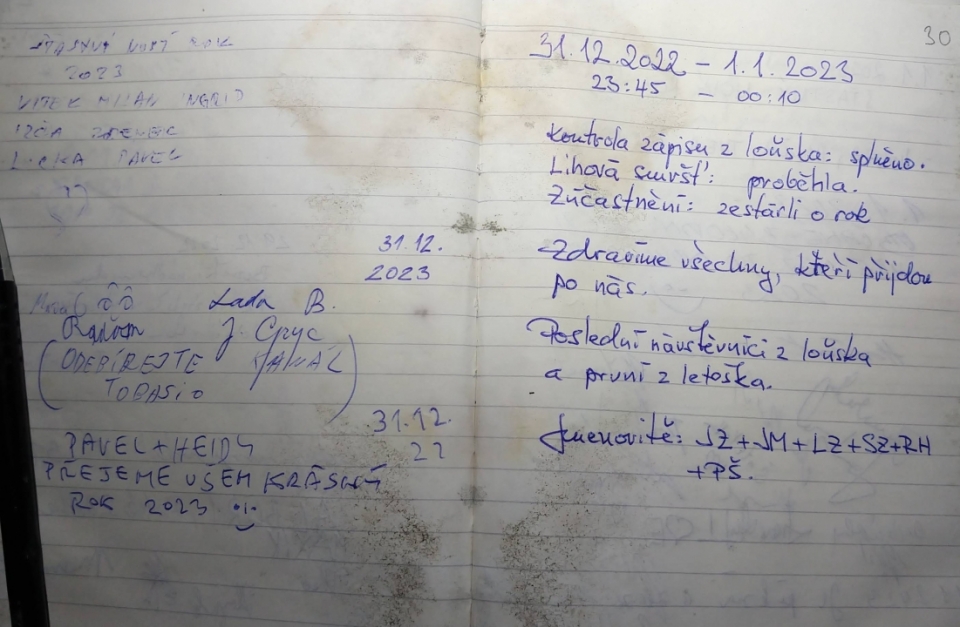 ŠŤASTNÝ NOVÝ ROK
2023
VÍTEK MILAN INGRID
ZDENEK
PAVEL
31.12.
2023
Lada B.
Radom
J. Gryc
(ODEBÍREJTE KANÁL
TOBASIO)
31.12.
22
PAVEL + HEIDY
PŘEJEME VŠEM KRÁSNÝ
ROK 2023
30
31.12.2022 – 1.1.2023
23:45 – 00:10
Kontrola zápisu z loňska: splněno.
Lihová smršť: proběhla.
Zúčastnění: zestárli o rok
Zdravíme všechny, kteří přijdou
po nás.
Poslední návštěvníci z loňska
a první z letoška.
Jmenovitě: JZ + JM + LZ + SZ + RH
+ PŠ.